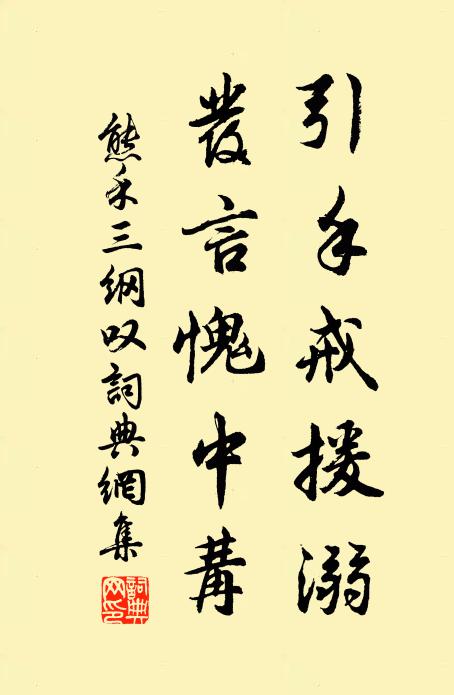 引手戒援溺
發言愧中冓
熊禾三纲叹詞典網集
詞典網印